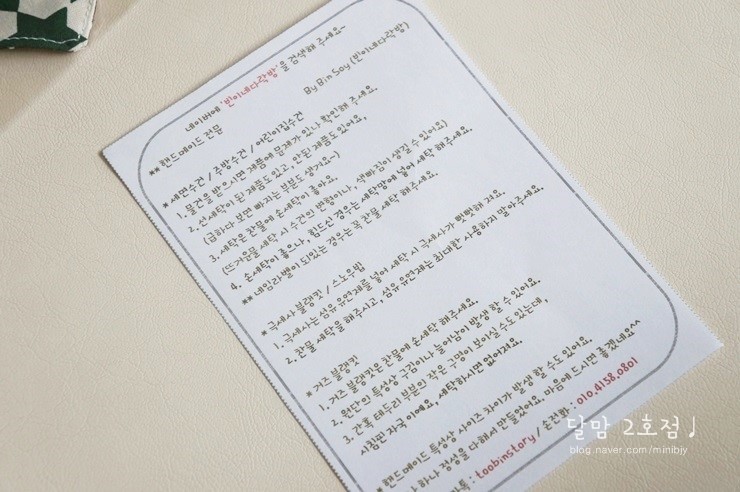 네이버에 '빈이네다락방'을 검색해 주세요~
By Bin Soy (빈이네다락방)
** 핸드메이드 전문
* 세면수건 / 주방수건 / 어린이집수건
1. 물건을 받으시면 제품에 문제가 있나 확인해 주세요.
2. 선세탁이 된 제품도 있고, 안된 제품도 있어요.
(급하다 보면 빠지는 부분도 생겨요~)
3. 세탁은 찬물에 손세탁이 좋아요.
(뜨거운물 세탁 시 수건의 변형이나, 색빠짐이 생길 수 있어요)
4. 손세탁이 좋으나, 힘드신 경우는 세탁망에 넣어 세탁 해주세요.
**네임라벨이 되있는 경우는 꼭 찬물 세탁 해주세요.
* 극세사 블랭킷 / 스노우밤
1. 극세사는 섬유유연제를 넣어 세탁 시 극세사가 뻣뻣해 져요.
2. 찬물 세탁을 해주시고, 섬유유연제는 최대한 사용하지 말아주세요.
* 거즈 블랭킷
1. 거즈 블랭킷은 찬물에 손세탁 해주세요.
2. 원단의 특성상 구김이나 늘어남이 발생 할 수 있어요.
3. 간혹 테두리 부분인 작은 구멍이 보이실 수도 있는데,
시침핀 자국 이에요, 세탁하시면 없어져요.
*핸드메이드 특성상 사이즈 차이가 발생 할 수도 있어요.
하나 정성을 다해서 만들었어요. 마음에 드시면 좋겠네요^^
톡 : toobinstory / 손전화 : 010.4158.0801
달맘 2호점♩
blog.naver.com/minibjy